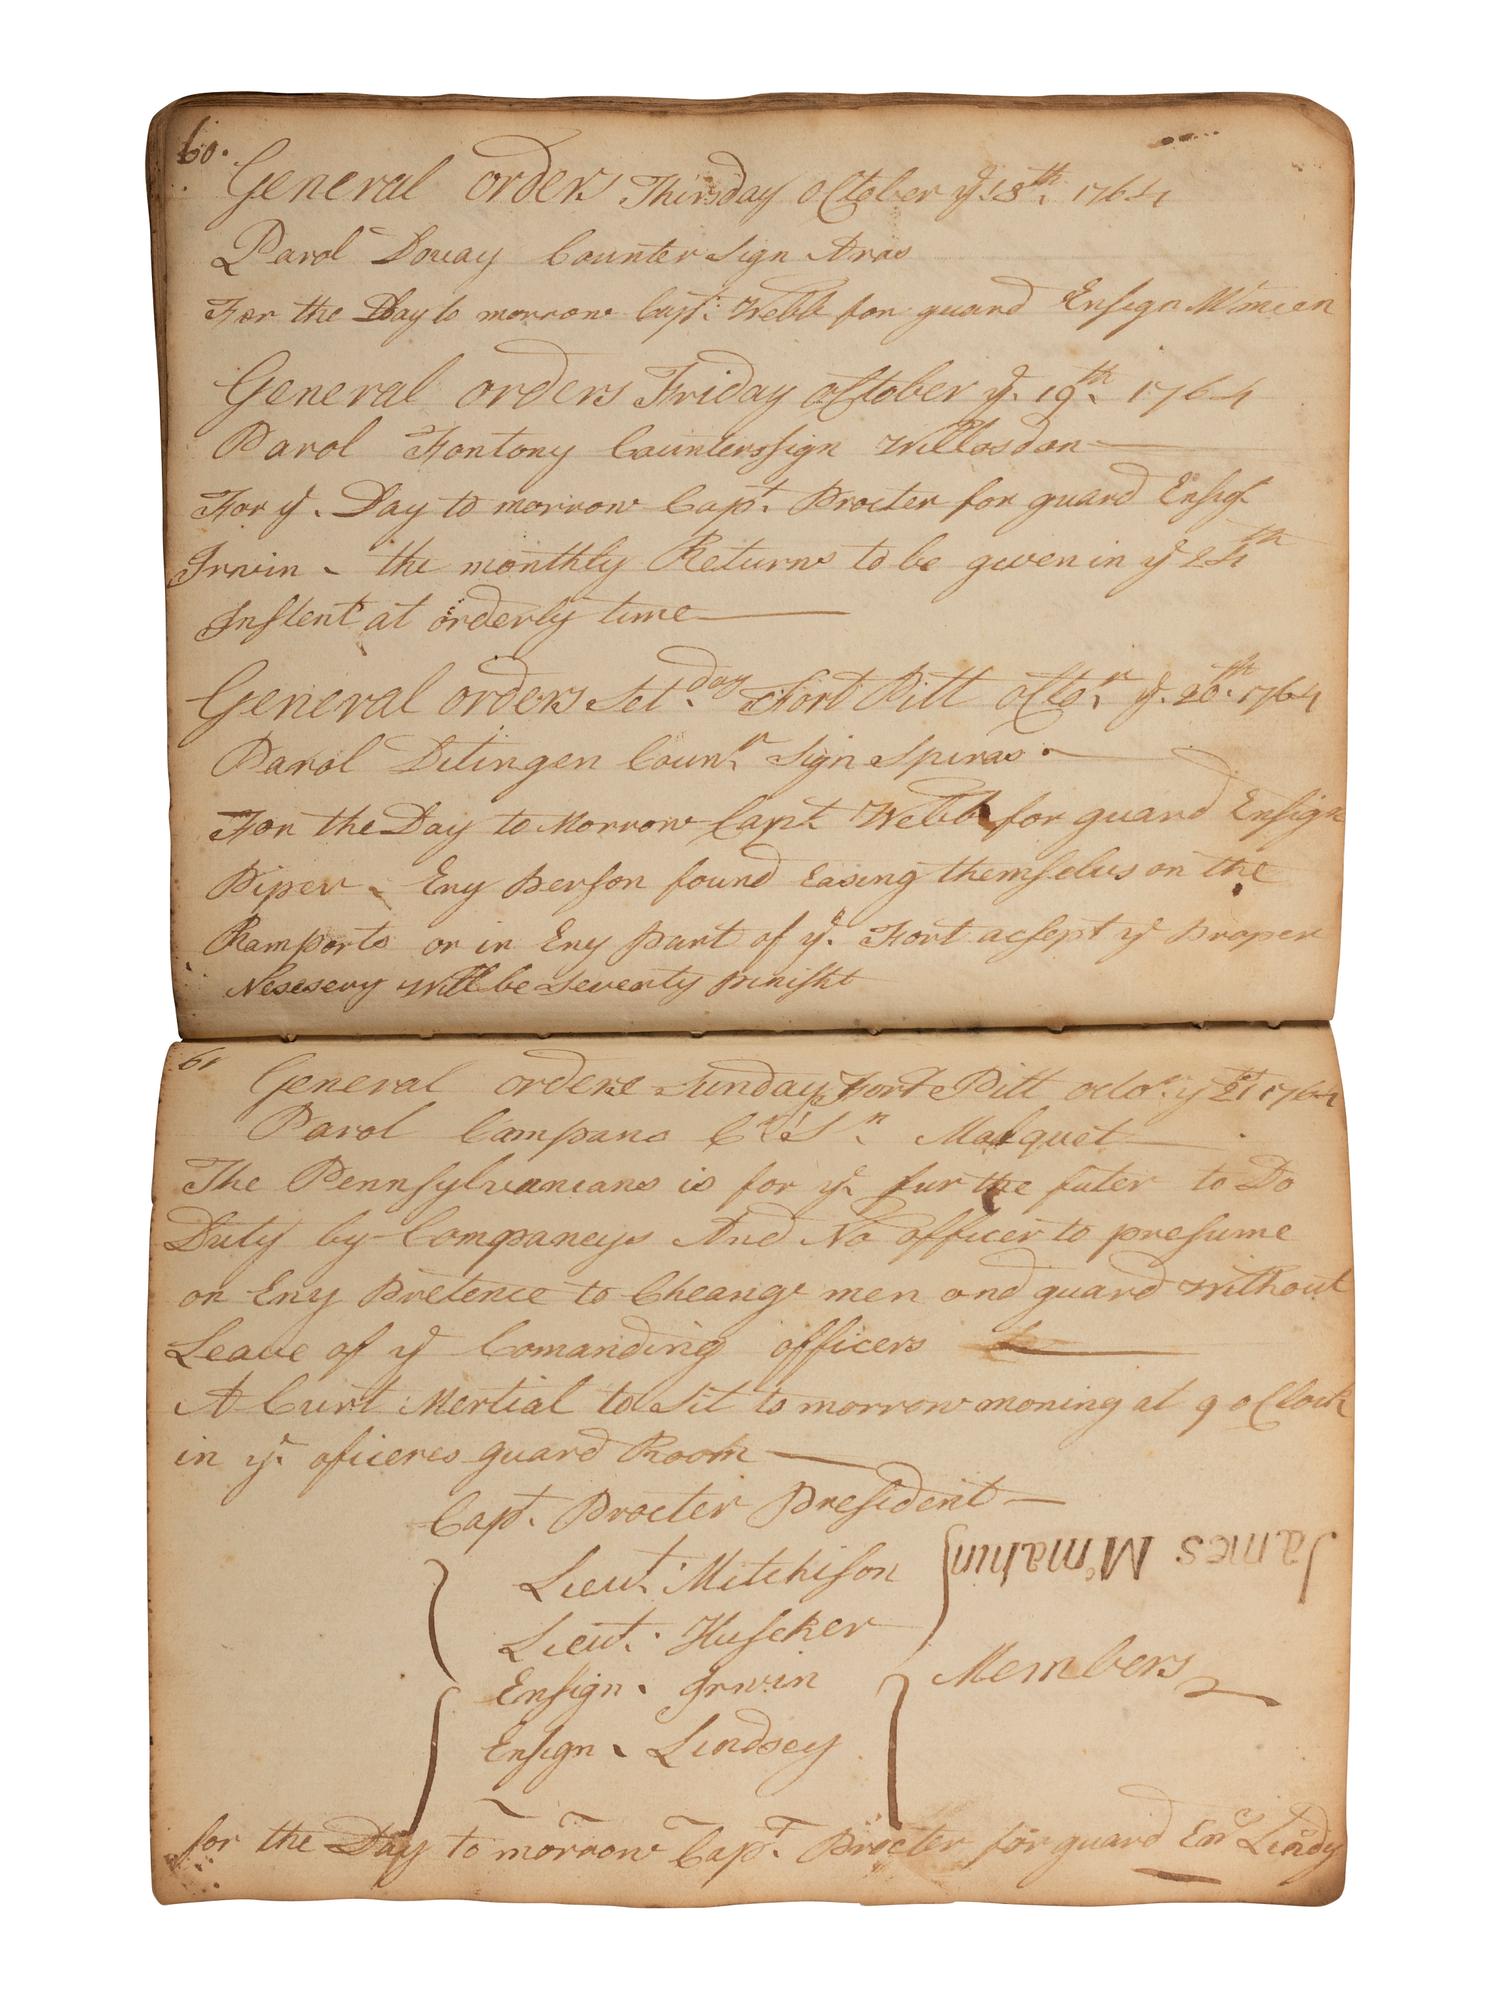 60.
General orders Thirsday October ye 18th. 1764
Parol Douay Counter Sign Aras
For the Day to morrow Capt. Webb for guard Ensign Mcmeen
General orders Friday october ye. 19th. 1764
Parol Fontony Counterssign Willosdon
For ye. Day to morrow Capt. Procter for guard Ensign
Irwin - the monthly Returns to be given in ye 24th
Instent at orderly time
General orders Set.day Fort Pitt octo.r ye. 20th. 1764
Parol Ditingen Coun.r Sign Spiras.
For the Day to Morrow Capt. Webb for guard Ensign
Piper - Eny person found Easing themselvs on the
Ramports or in Eny part of ye. Fort acsept ye proper
Nesesery Will be Severly punisht
61
General orders Sunday Fort Pitt octor. ye 21st 1764
Parol Campans Cr. Sn. Malquet
The Pennsylvanians is for ye. fur the futer to Do
Duty by Companeys And No officer to presume
on Eny Pretence to Cheange men ond guard Without
Leave of ye Comanding officers
A Curt Mertial to Sit to morrow moning at 9 oClock
in ye. oficeres guard Room
Capt. Procter President
James Mcmahing
Lieut. Mitchison
Lieut. Huseker
Ensign. Irwin
Members
Ensign. Lindsey
for the Day to morrow Capt. Procter for guard Enn Lindy